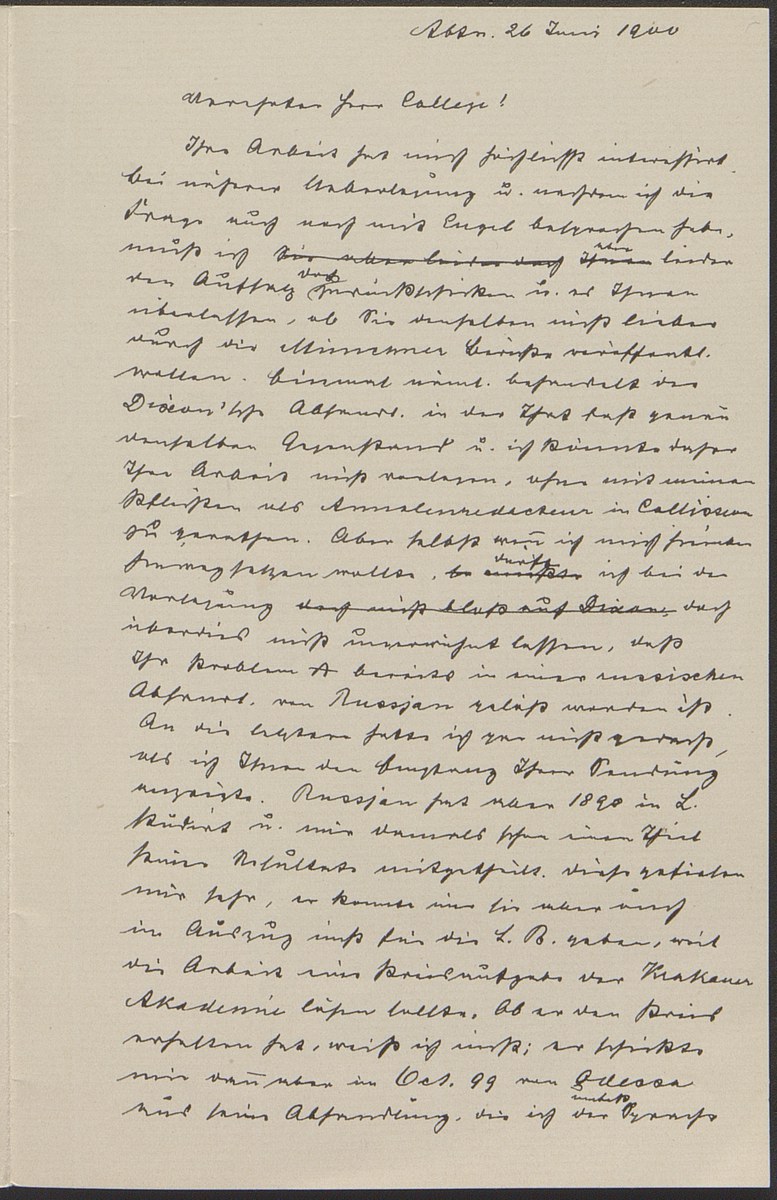 Abtn. 26 Juni 1900
Verehrter Herr College!
Ihre Arbeit hat mich höchlichst interessirt.
Bei näherer Ueberlegung u. nachdem ich die
Frage auch noch mit Engel besprochen habe,
muß ich Sie aber leider doch Ihnen aber leider
den Aufsatz doch zurückschicken u. es Ihnen
überlassen, ob Sie denselben nicht lieber
durch die Münchner Berichte veröffentl.
wollen. Einmal näml. behandelt die
Dixon'sche Abhandl. in der That fast genau
denselben Gegenstand u. ich könnte daher
Ihre Arbeit nicht vorlegen, ohne mit meinen
Pflichten als Annalenredacteur in Collision
zu gerathen. Aber selbst wenn ich mich hierüber
hinwegsetzen wollte, so müßte dürfte ich bei der
Vorlegung doch nicht bloß auf Dixon, doch
überdies nicht unerwähnt lassen, daß
Ihr Problem A bereits in einer russischen
Abhandl. von Russjan gelöst worden ist.
An die letztere hatte ich gar nicht gedacht,
als ich Ihnen den Empfang Ihrer Sendung
anzeigte. Russjan hat aber 1898 in L.
studirt u. mir damals schon einen Theil
seiner Resultate mitgetheilt. Diese gefielen
mir sehr, er konnte mir sie aber auch
im Auszug nicht für die L. B. geben, weil
die Arbeit eine Preisaufgabe der Krakauer
Akademie lösen sollte. Ob er den Preis
erhalten hat, weiß ich nicht; er schickte
mir dann aber im Oct. 99 von Odessa
aus seine Abhandlung, die ich der Sprache